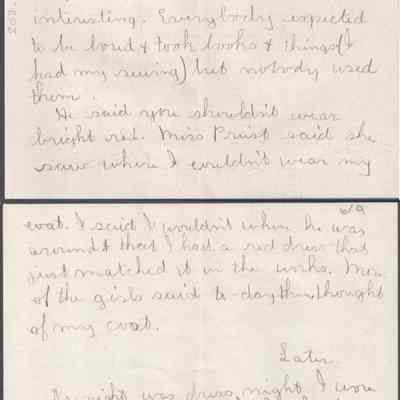 interesting. Everybody expected
to be bored & took books & things (I
had my sewing) but nobody used
them.
He said you shouldn't wear
bright red. Miss Priest said she
saw where I couldn't wear my
6/9
coat. I said I wouldn't when he was
around & that I had a red dress that
just matched it in the works. More
of the girls said to-day they thought
of my coat.
Later.
night was dress night. I wore